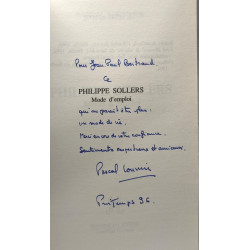 Pour Jean Paul Bertrand
Ce
PHILIPPE SOLLERS
Mode d'emploi
qui me paraît être plus
un mode de vie.
Merci encore de votre confiance.
Sentiments respectueux et amicaux.
Pascal Louvrier
Printemps 96